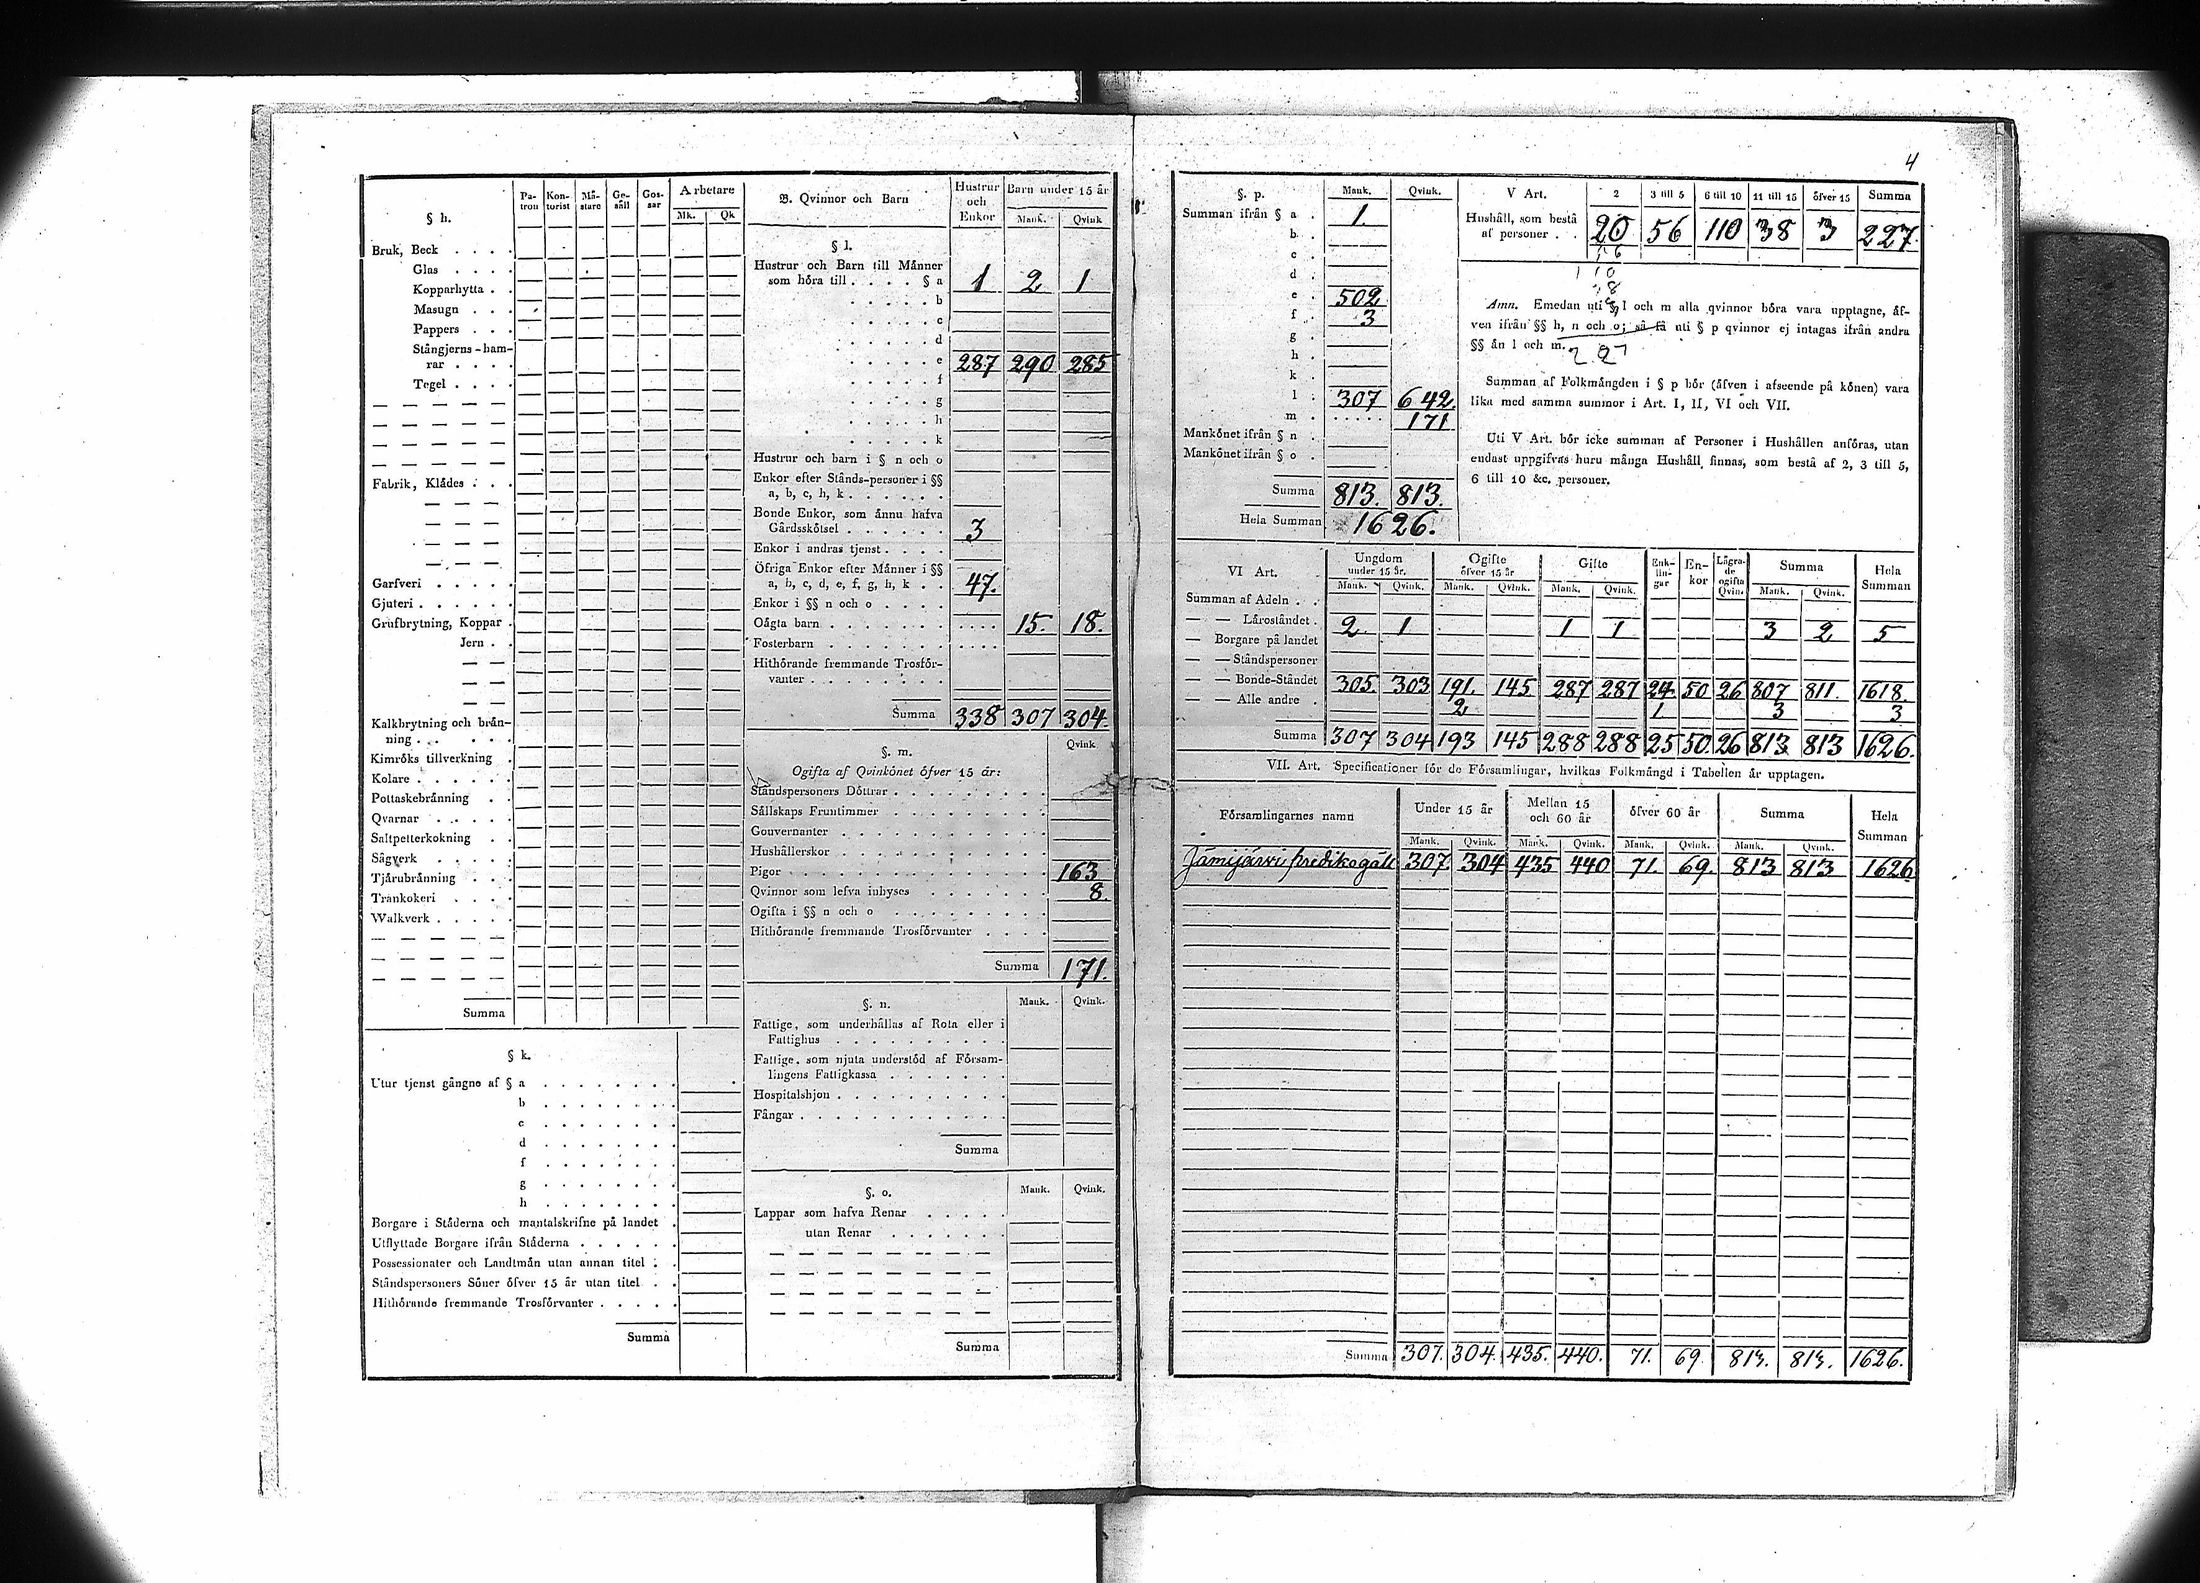 4
§ h.
Pa-tron Kon-torist Mä-stare Ge-säll Gos-sar Arbetare
Mk. Qk
Bruk, Beck . . . .
Glas . . . .
Kopparhytta . .
Masugn . . .
Pappers . . .
Stångjerns-ham-
rar . . . .
Tegel . . . .
Fabrik, Klädes . . .
Garfveri . . . . .
Gjuteri . . . . . .
Grufbrytning, Koppar .
Jern . .
Kalkbrytning och brän-
ning . . . . . .
Kimröks tillverkning .
Kolare . . . . . .
Pottaskebränning . .
Qvarnar . . . . .
Saltpetterkokning . .
Sågverk . . . . .
Tjärubränning . . .
Trankokeri . . . .
Walkverk . . . . .
Summa
§ k.
Utur tjenst gångne af § a . . . . . . . .
b . . . . . . . .
c . . . . . . . .
d . . . . . . . .
f . . . . . . . .
g . . . . . . . .
h . . . . . . . .
Borgare i Städerna och mantalskrifne på landet .
Utflyttade Borgare ifrån Städerna . . . . . .
Possessionater och Landtmän utan annan titel . .
Ståndspersoners Söner öfver 15 år utan titel . .
Hithörande fremmande Trosförvanter . . . . .
Summa
B. Qvinnor och Barn
Hustrur och Enkor Barn under 15 år
Mank. Qvink
§ l.
Hustrur och Barn till Männer
som höra till . . . . § a 1 2 1
. . . . . b
. . . . . c
. . . . . d
. . . . . e 287 290 285
. . . . . f
. . . . . g
. . . . . h
. . . . . k
Hustrur och barn i § n och o
Enkor efter Stånds-personer i §§
a, b, c, h, k . . . . . .
Bonde Enkor, som ännu hafva
Gårdsskötsel . . . . . . 3
Enkor i andras tjenst . . . .
Öfriga Enkor efter Männer i §§
a, b, c, d, e, f, g, h, k . . 47.
Enkor i §§ n och o . . . .
Oägta barn . . . . . . . . . . . 15. 18.
Fosterbarn . . . . . . . . . . .
Hithörande fremmande Trosför-
vanter . . . . . . . .
Summa 338 307 304.
§. m.
Qvink
Ogifta af Qvinkönet öfver 15 år:
Ståndspersoners Döttrar . . . . . . . . .
Sällskaps Fruntimmer . . . . . . . . .
Gouvernanter . . . . . . . . . . . .
Hushållerskor . . . . . . . . . . . .
Pigor . . . . . . . . . . . . . . 163
Qvinnor som lefva inhyses . . . . . . 8.
Ogifta i §§ n och o . . . . . . . . .
Hithörande fremmande Trosförvanter . . . .
Summa 171.
§. n.
Mank. Qvink.
Fattige, som underhållas af Rota eller i
Fattighus . . . . . . . . . .
Fattige, som njuta understöd af Försam-
lingens Fattigkassa . . . . . . .
Hospitalshjon . . . . . . . . . .
Fångar . . . . . . . . . . . .
Summa
§. o.
Mank. Qvink.
Lappar som hafva Renar . . . . .
utan Renar . . . . . . .
Summa
§. p.
Mank. Qvink.
Summan ifrån § a . 1.
b .
c .
d .
e . 502
f . 3
g .
h .
k .
l . 307 642.
m . . . . . . 171
Mankönet ifrån § n .
Mankönet ifrån § o .
Summa 813. 813.
Hela Summan 1626.
V Art.
2 3 till 5 6 till 10 11 till 15 öfver 15 Summa
Hushåll, som bestå
af personer . . 20 56 110 38 3 227.
110
227
Anm. Emedan uti § l och m alla qvinnor böra vara upptagne, äf-
ven ifrån §§ h, n och o; så få uti § p qvinnor ej intagas ifrån andra
§§ än l och m.
Summan af Folkmängden i § p bör (äfven i afseende på könen) vara
lika med samma summor i Art. I, II, VI och VII.
Uti V Art. bör icke summan af Personer i Hushållen anföras, utan
endast uppgifvas huru många Hushåll finnas, som bestå af 2, 3 till 5,
6 till 10 &c. personer.
VI Art.
Ungdom under 15 år. Ogifte öfver 15 år Gifte Enk-lin-gar En-kor Lägra-de ogifta Qvin. Summa Hela Summan
Mank. Qvink. Mank. Qvink. Mank. Qvink. Mank. Qvink.
Summan af Adeln . .
— — Läroståndet . 2 1 1 1 3 2 5
— Borgare på landet
— — Ståndspersoner
— — Bonde-Ståndet 305. 303 191. 145 287 287 24 50 26 807 811. 1618.
— — Alle andre . 2 1 3 3
Summa 307 304 193 145 288 288 25 50. 26 813 813 1626.
VII. Art. Specificationer för de Församlingar, hvilkas Folkmängd i Tabellen är upptagen.
Församlingarnes namn Under 15 år Mellan 15 och 60 år öfver 60 år Summa Hela Summan
Mank. Qvink. Mank. Qvink. Mank. Qvink. Mank. Qvink.
Jämijärvi predikogäll 307. 304 435 440 71. 69. 813 813 1626
Summa 307. 304. 435. 440. 71. 69. 813. 813. 1626.